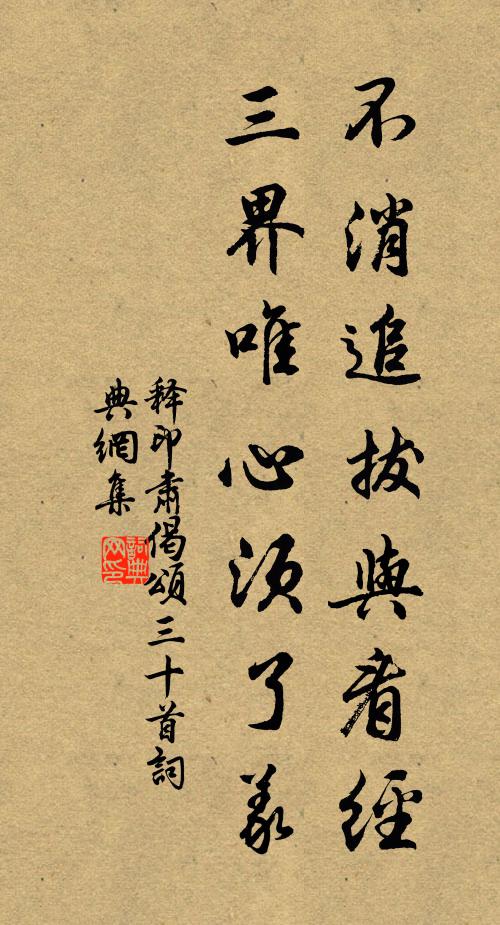 不消追拔與看經
三界唯心須了義
释印肅偈頌三十首詞
典網集
詞典網印